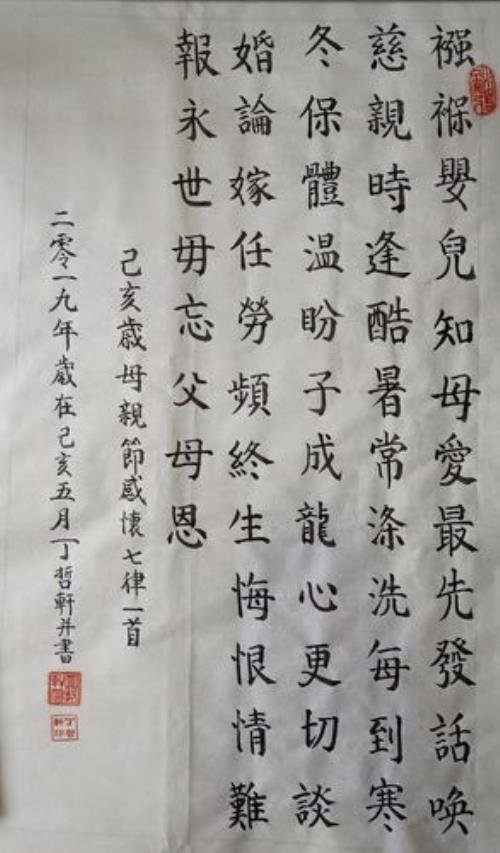 襁褓嬰兒知母愛最先發話喚
慈親時逢酷暑常涤洗每到寒
冬保體温盼子成龍心更切談
婚論嫁任勞頻終生悔恨情難
報永世毋忘父母恩
己亥歲母親節感懷七律一首
二零一九年歲在己亥五月丁哲軒并書